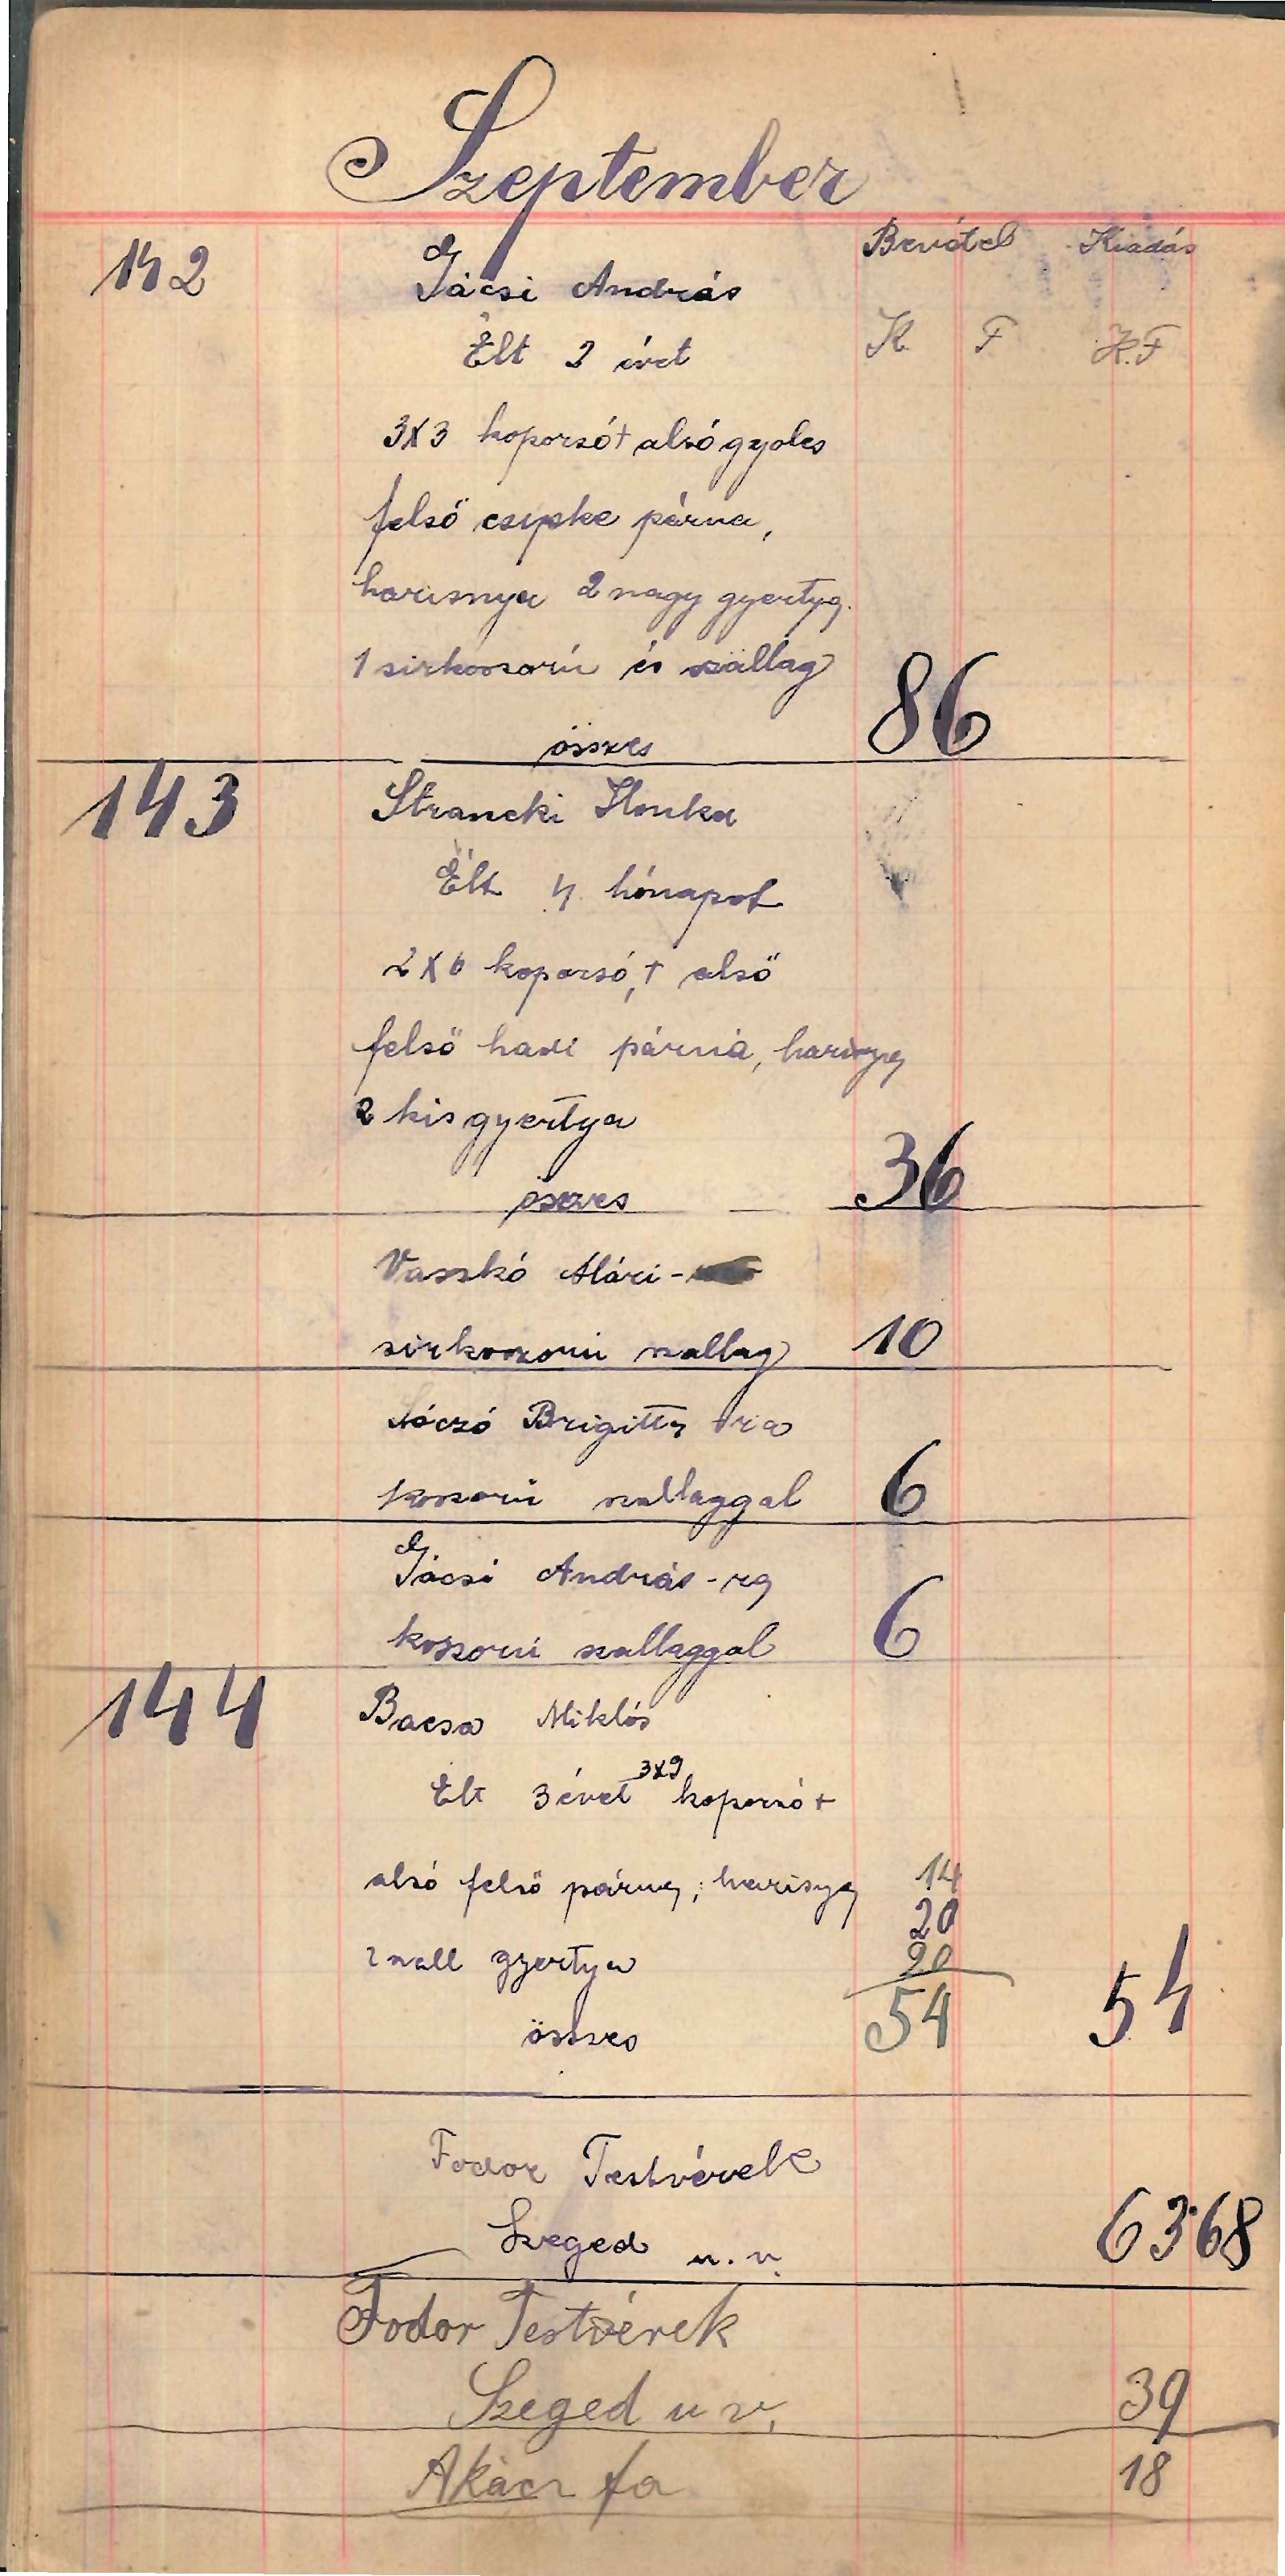 Szeptember
Bevétel Kiadás
142 Jácsi András
K F K.F
Élt 2 évet
3x3 koporsó+ alsó gyolcs
felső csipke párna,
harisnya 2 nagy gyertya.
1 sirkoszorú és szállag
összes 86
143 Strancki Ilonka
Élt 4 hónapot
2x6 koporsó,+ alsó
felső havi párna,
2 kis gyertya
összes 36
Vaszkó Mári-
sirkoszorú szallag 10
Brigitta
koszorú szallaggal 6
Jácsi András-ra
koszorú szallaggal 6
144 Bacsa Miklós
Élt 3 évet 3x9 koporsó+
alsó felső párna, 14
20
2 gyertya 20
összes 54 54
Fodor Testvérek
Szeged u.v. 63'68
Fodor Testvérek
Szeged u v. 39
Akácz fa 18